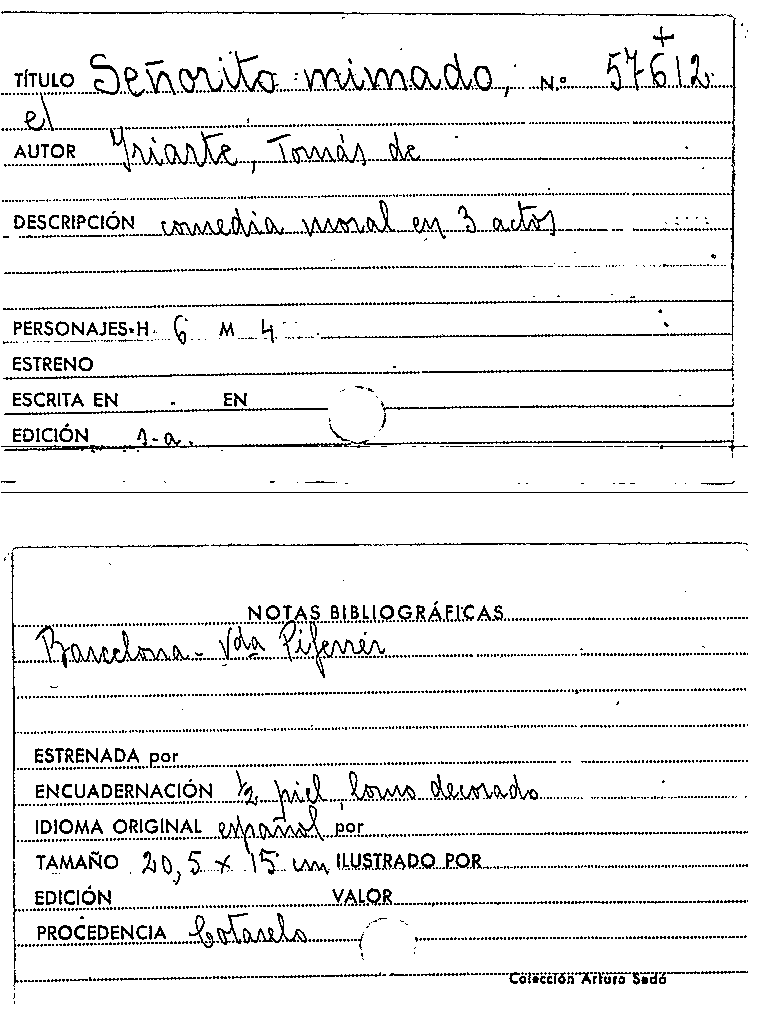 TÍTULO Señorito mimado, N.º 57612
el
AUTOR Yriarte, Tomás de
DESCRIPCIÓN comedia moral en 3 actos
PERSONAJES-H 6 M 4
ESTRENO
ESCRITA EN EN
EDICIÓN s-a.
NOTAS BIBLIOGRÁFICAS
Barcelona - Vda Piferrér
ESTRENADA por
ENCUADERNACIÓN 1/2 piel, lomo decorado
IDIOMA ORIGINAL español por
TAMAÑO 20,5 x 15 cm ILUSTRADO POR
EDICIÓN VALOR
PROCEDENCIA Cotarelo
Colección Arturo Sedó